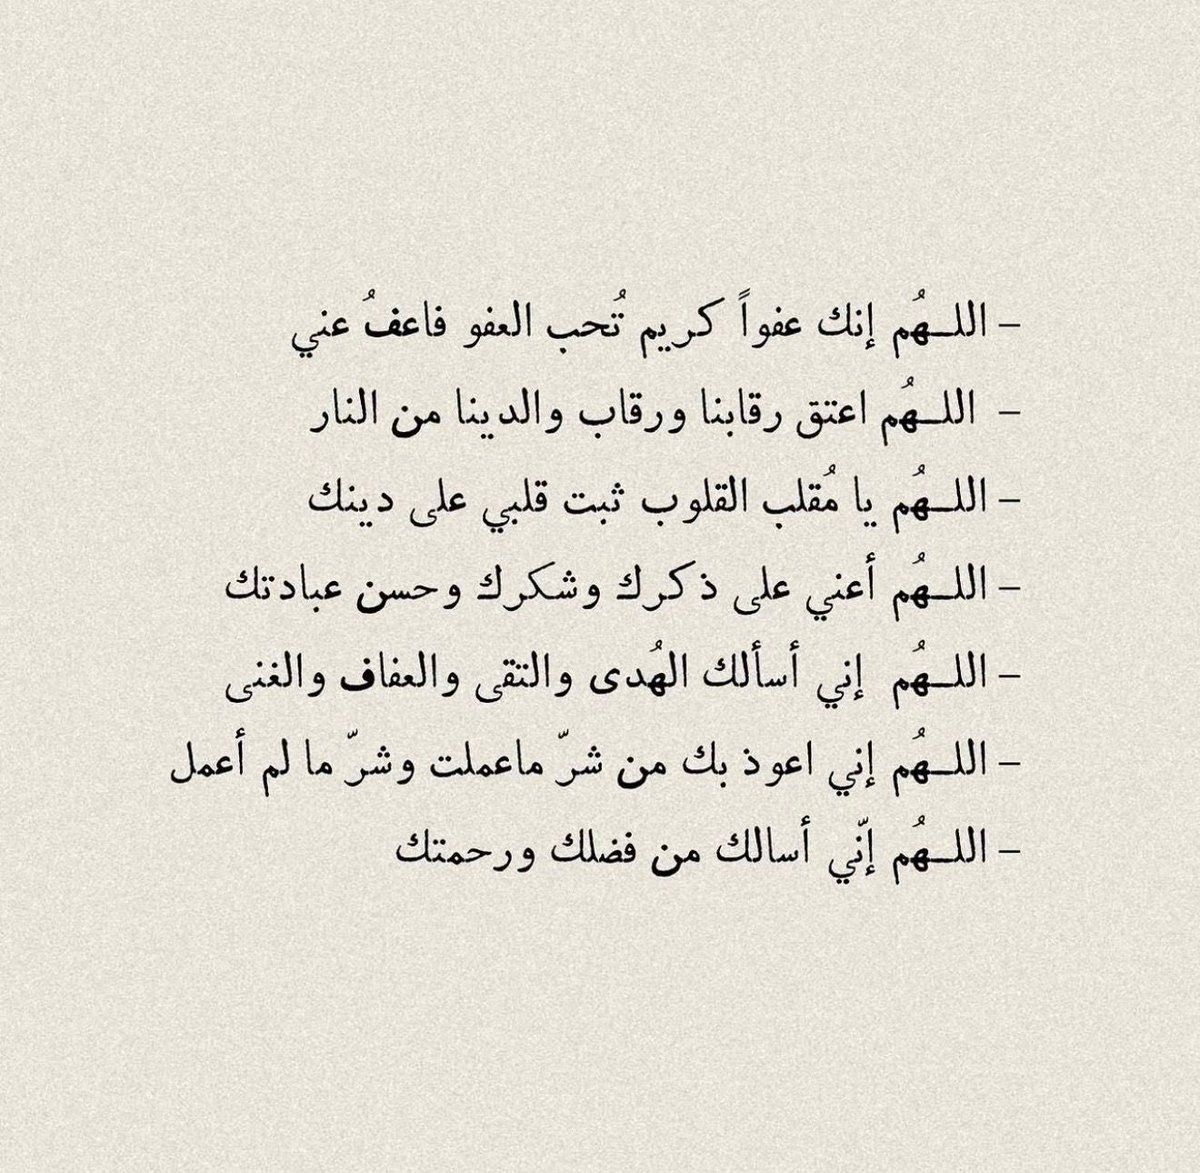 – اللـهُم إنك عفواً كريم تُحب العفو فاعفُ عني
– اللـهُم اعتق رقابنا ورقاب والدينا من النار
– اللـهُم يا مُقلب القلوب ثبت قلبي على دينك
– اللـهُم أعني على ذكرك وشكرك وحسن عبادتك
– اللـهُم إني أسألك الهُدى والتقى والعفاف والغنى
– اللـهُم إني اعوذ بك من شرّ ماعملت وشرّ ما لم أعمل
– اللـهُم إنّي أسالك من فضلك ورحمتك